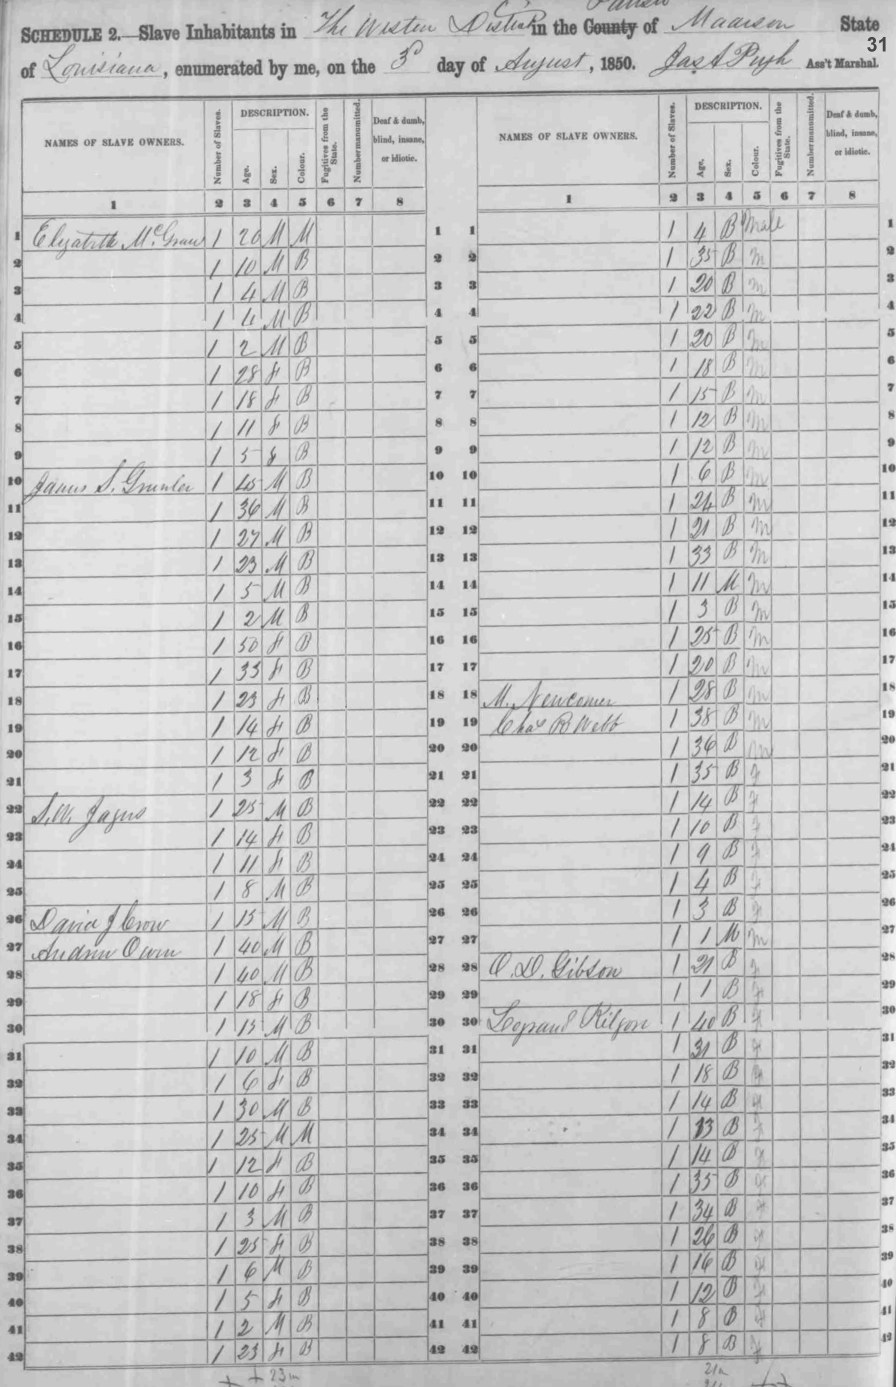 SCHEDULE 2.—Slave Inhabitants in The Western District in the County of Parish State
31
of Louisiana, enumerated by me, on the 3d day of August, 1850. Jas A Pugh Ass't Marshal.
NAMES OF SLAVE OWNERS. Number of Slaves. DESCRIPTION. Age. Sex. Colour. Fugitives from the State. Number manumitted. Deaf & dumb, blind, insane, or idiotic.
NAMES OF SLAVE OWNERS. Number of Slaves. DESCRIPTION. Age. Sex. Colour. Fugitives from the State. Number manumitted. Deaf & dumb, blind, insane, or idiotic.
1 2 3 4 5 6 7 8
1 2 3 4 5 6 7 8
1 Elizabeth 1 20 M M 1
2 1 10 M B 2
3 1 4 M B 3
4 1 4 M B 4
5 1 2 M B 5
6 1 28 f B 6
7 1 18 f B 7
8 1 11 f B 8
9 1 5 f B 9
10 James S. 1 45 M B 10
11 1 36 M B 11
12 1 27 M B 12
13 1 23 M B 13
14 1 5 M B 14
15 1 2 M B 15
16 1 50 f B 16
17 1 33 f B 17
18 1 23 f B 18
19 1 14 f B 19
20 1 12 f B 20
21 1 3 f B 21
22 S. W. 1 25 M B 22
23 1 14 f B 23
24 1 11 f B 24
25 1 8 M B 25
26 David J Crow 1 15 M B 26
27 Andrew Owen 1 40 M B 27
28 1 40 M B 28
29 1 18 f B 29
30 1 15 M B 30
31 1 10 M B 31
32 1 6 f B 32
33 1 30 M B 33
34 1 25 M M 34
35 1 12 f B 35
36 1 10 f B 36
37 1 3 M B 37
38 1 25 f B 38
39 1 6 M B 39
40 1 5 f B 40
41 1 2 M B 41
42 1 23 f B 42
23 m
1 1 4 B Male 1
2 1 35 B m 2
3 1 20 B m 3
4 1 22 B m 4
5 1 20 B m 5
6 1 18 B m 6
7 1 15 B m 7
8 1 12 B m 8
9 1 12 B m 9
10 1 6 B m 10
11 1 24 B m 11
12 1 21 B m 12
13 1 33 B m 13
14 1 11 M m 14
15 1 3 B m 15
16 1 25 B m 16
17 1 20 B m 17
18 M. Newcomer 1 28 B m 18
19 Chas R Webb 1 38 B m 19
20 1 36 B m 20
21 1 35 B f 21
22 1 14 B f 22
23 1 10 B f 23
24 1 9 B f 24
25 1 4 B f 25
26 1 3 B f 26
27 1 1 M m 27
28 O. D. Gibson 1 21 B f 28
29 1 1 B f 29
30 Legrand Kilgore 1 40 B f 30
31 1 31 B f 31
32 1 18 B f 32
33 1 14 B f 33
34 1 13 B f 34
35 1 14 B f 35
36 1 35 B f 36
37 1 34 B f 37
38 1 26 B f 38
39 1 16 B f 39
40 1 12 B f 40
41 1 8 B f 41
42 1 8 B f 42
21 m